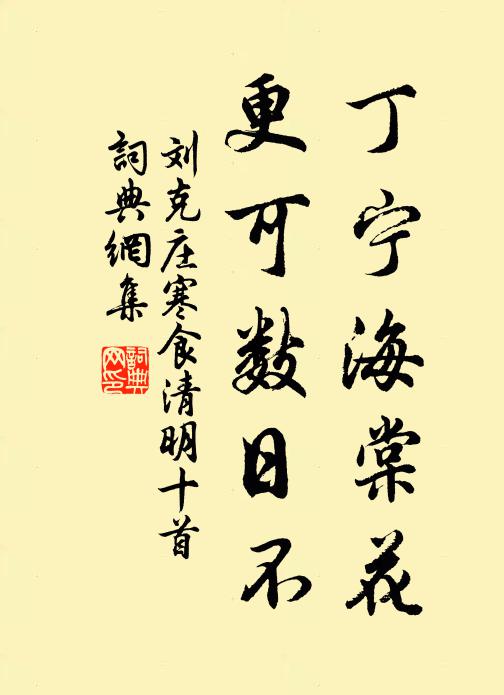 丁宁海棠花
更可数日不
刘克庄寒食清明十首
词典網集
詞典網印